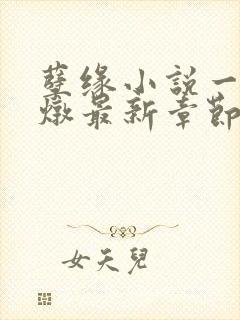 孽缘小説一
燉最新章節
女天兒